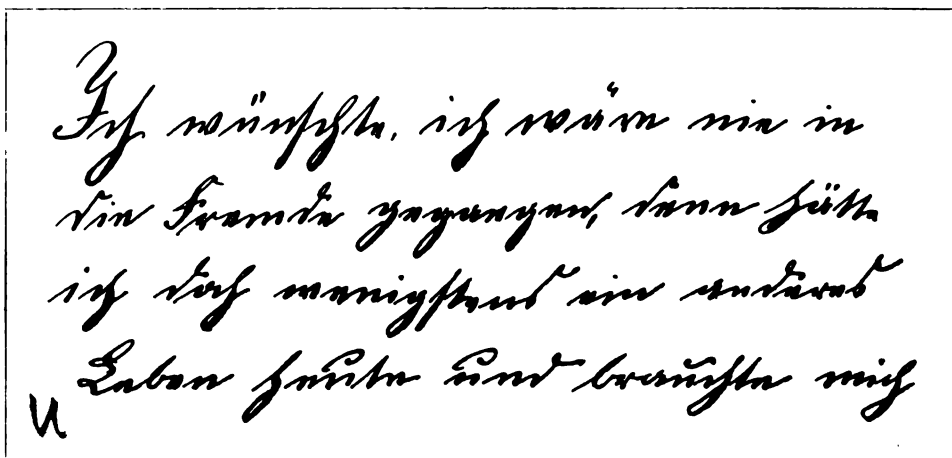 Ich wünschte, ich wäre nie in
die Fremde gegangen, dann hätte
ich doch wenigstens ein anderes
Leben heute und brauchte mich